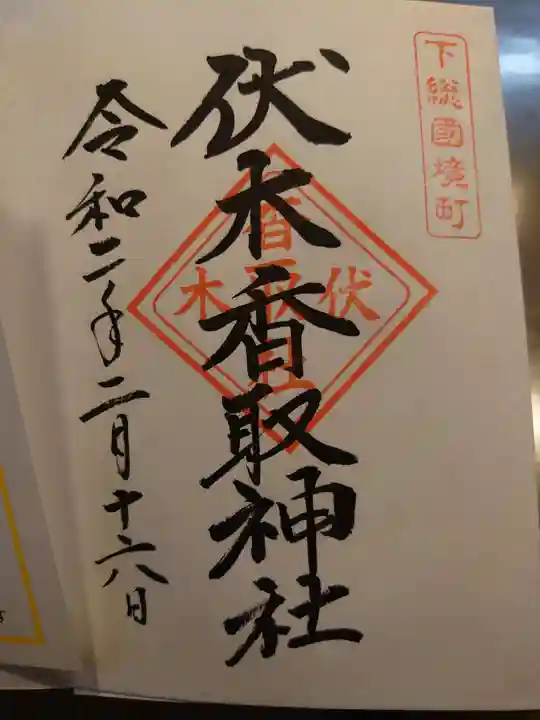 下総國境町
伏木香取神社
伏木
香取社
令和二年二月十六日